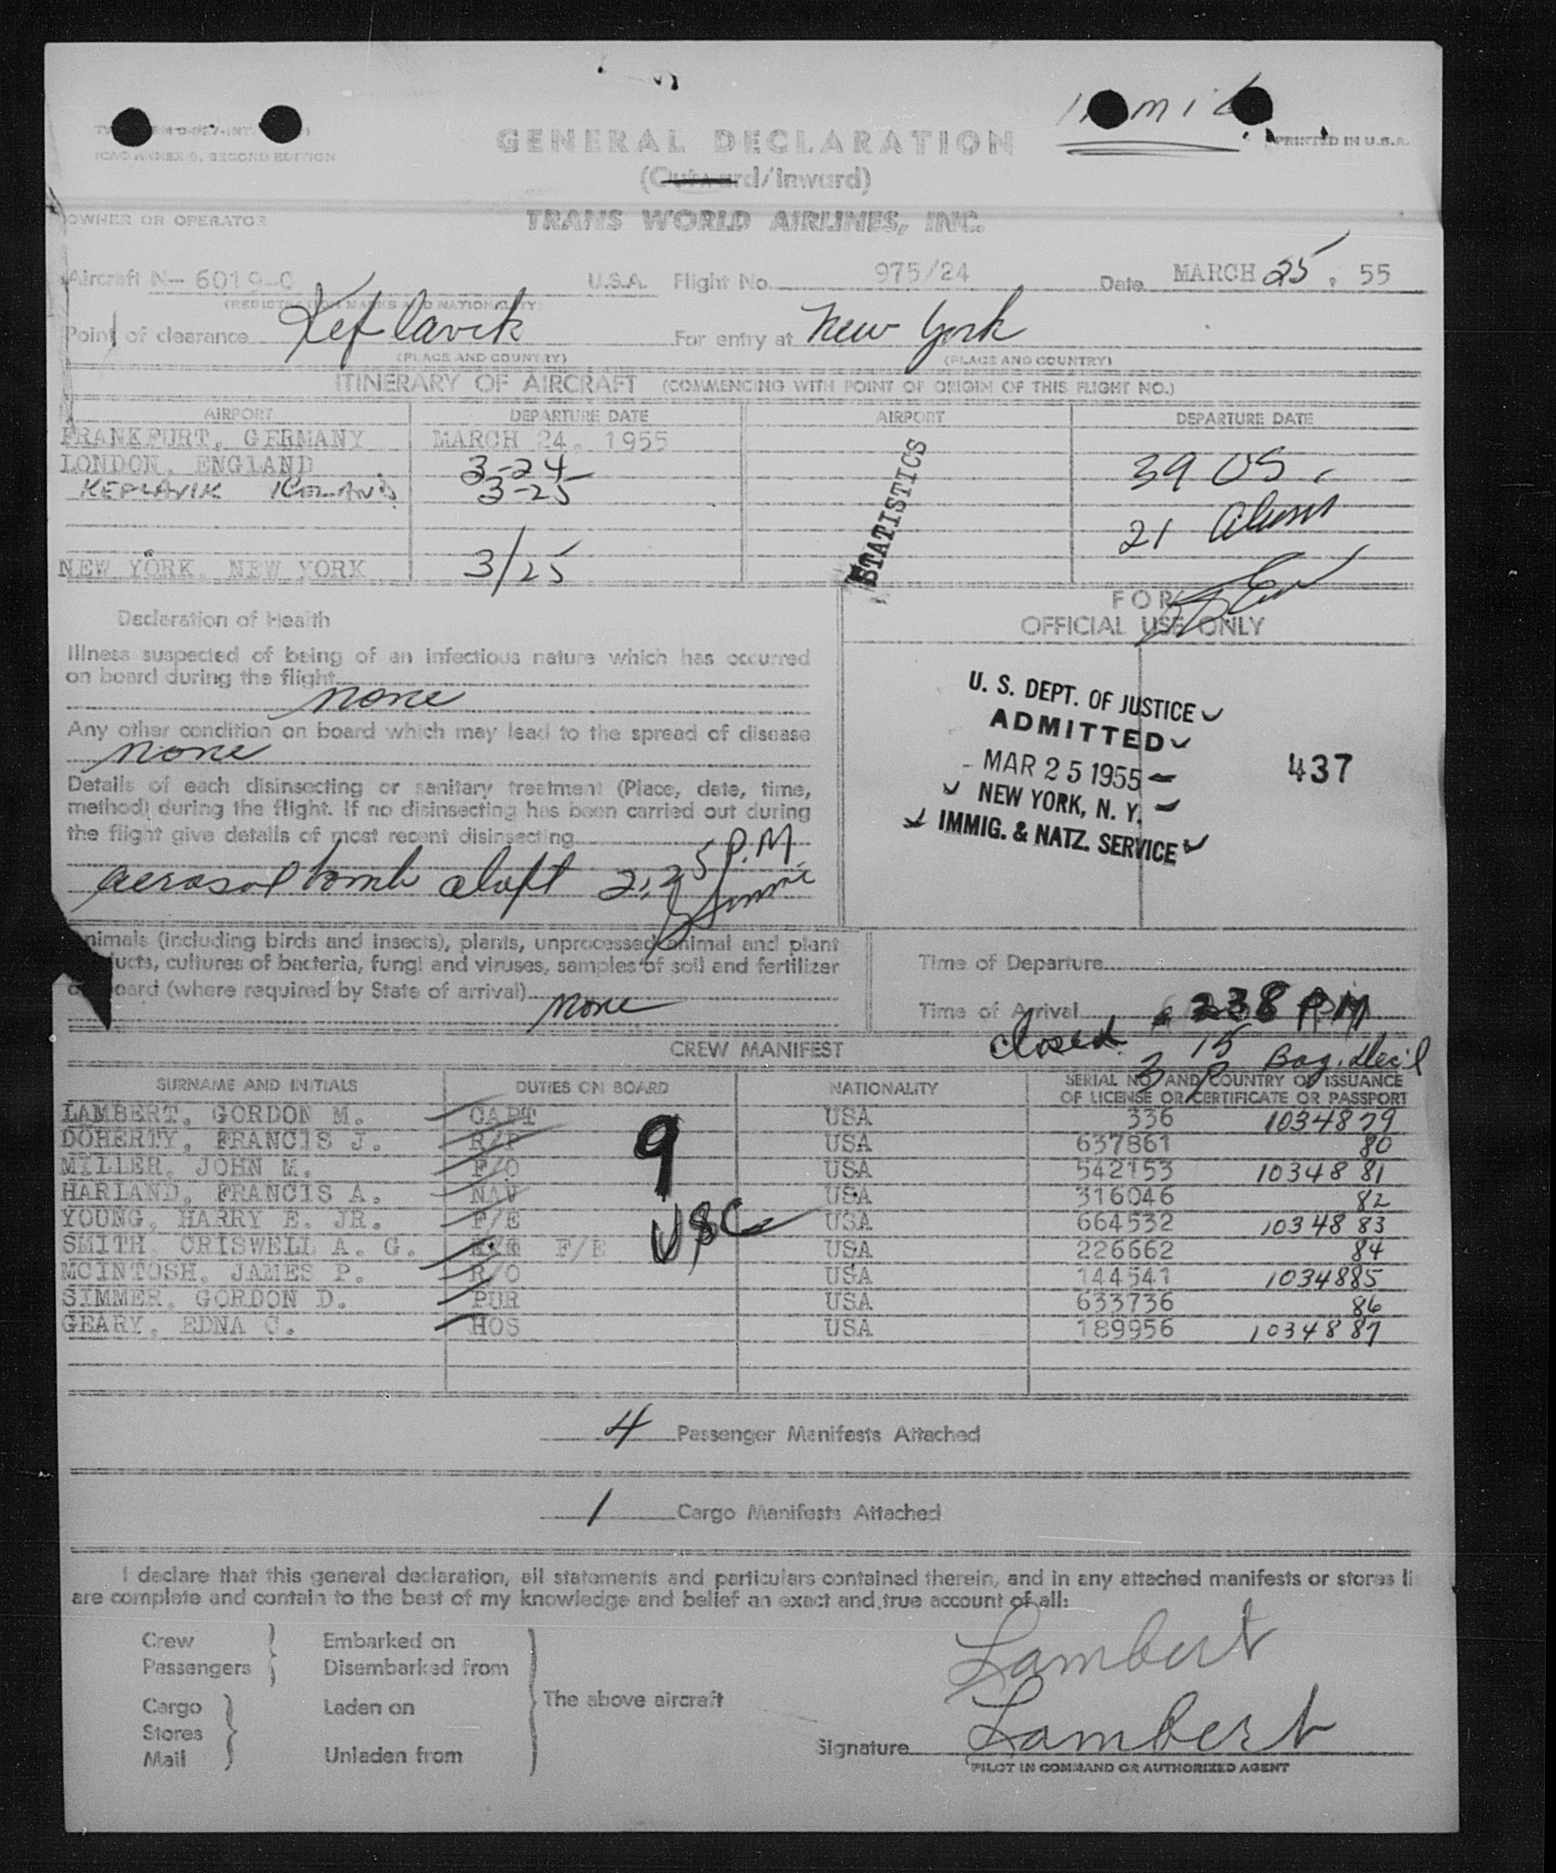 ICAO ANNEX 9, SECOND EDITION
PRINTED IN U.S.A.
GENERAL DECLARATION
(Outward/Inward)
OWNER OR OPERATOR
TRANS WORLD AIRLINES, INC.
Aircraft N- 6019-C U.S.A. Flight No. 975/24 Date MARCH 25, 55
(REGISTRATION MARKS AND NATIONALITY)
Point of clearance Keflavik For entry at New York
(PLACE AND COUNTRY) (PLACE AND COUNTRY)
ITINERARY OF AIRCRAFT (COMMENCING WITH POINT OF ORIGIN OF THIS FLIGHT NO.)
AIRPORT DEPARTURE DATE AIRPORT DEPARTURE DATE
FRANKFURT, GERMANY MARCH 24, 1955
LONDON, ENGLAND 3-24 39 US
KEFLAVIK ICELAND 3-25
21 aliens
STATISTICS
NEW YORK, NEW YORK 3/25
FOR
OFFICIAL USE ONLY
Declaration of Health
Illness suspected of being of an infectious nature which has occurred
on board during the flight
none
Any other condition on board which may lead to the spread of disease
none
Details of each disinsecting or sanitary treatment (Place, date, time,
method) during the flight. If no disinsecting has been carried out during
the flight give details of most recent disinsecting
aerosol bomb 2:25 P.M.
U. S. DEPT. OF JUSTICE
ADMITTED
MAR 25 1955
NEW YORK, N. Y.
IMMIG. & NATZ. SERVICE
437
Animals (including birds and insects), plants, unprocessed animal and plant
products, cultures of bacteria, fungi and viruses, samples of soil and fertilizer
on board (where required by State of arrival)
none
Time of Departure
Time of Arrival 238 PM
closed 3 15 P Bag. Decl
CREW MANIFEST
SURNAME AND INITIALS DUTIES ON BOARD NATIONALITY SERIAL NO. AND COUNTRY OF ISSUANCE
OF LICENSE OR CERTIFICATE OR PASSPORT
LAMBERT, GORDON M. CAPT USA 336 1034879
DOHERTY, FRANCIS J. R/P USA 637861 80
MILLER, JOHN M. F/O USA 542153 1034881
HARLAND, FRANCIS A. NAV USA 316046 82
YOUNG, HARRY E. JR. F/E USA 664532 1034883
SMITH, CRISWELL A. G. F/E USA 226662 84
MCINTOSH, JAMES P. R/O USA 144541 1034885
SIMMER, GORDON D. PUR USA 633736 86
GEARY, EDNA C. HOS USA 189956 1034887
9
USC
4 Passenger Manifests Attached
1 Cargo Manifests Attached
I declare that this general declaration, all statements and particulars contained therein, and in any attached manifests or stores li
are complete and contain to the best of my knowledge and belief an exact and true account of all:
Crew
Passengers
Embarked on
Disembarked from
Cargo
Stores
Mail
Laden on
Unladen from
The above aircraft
Lambert
Signature Lambert
PILOT IN COMMAND OR AUTHORIZED AGENT